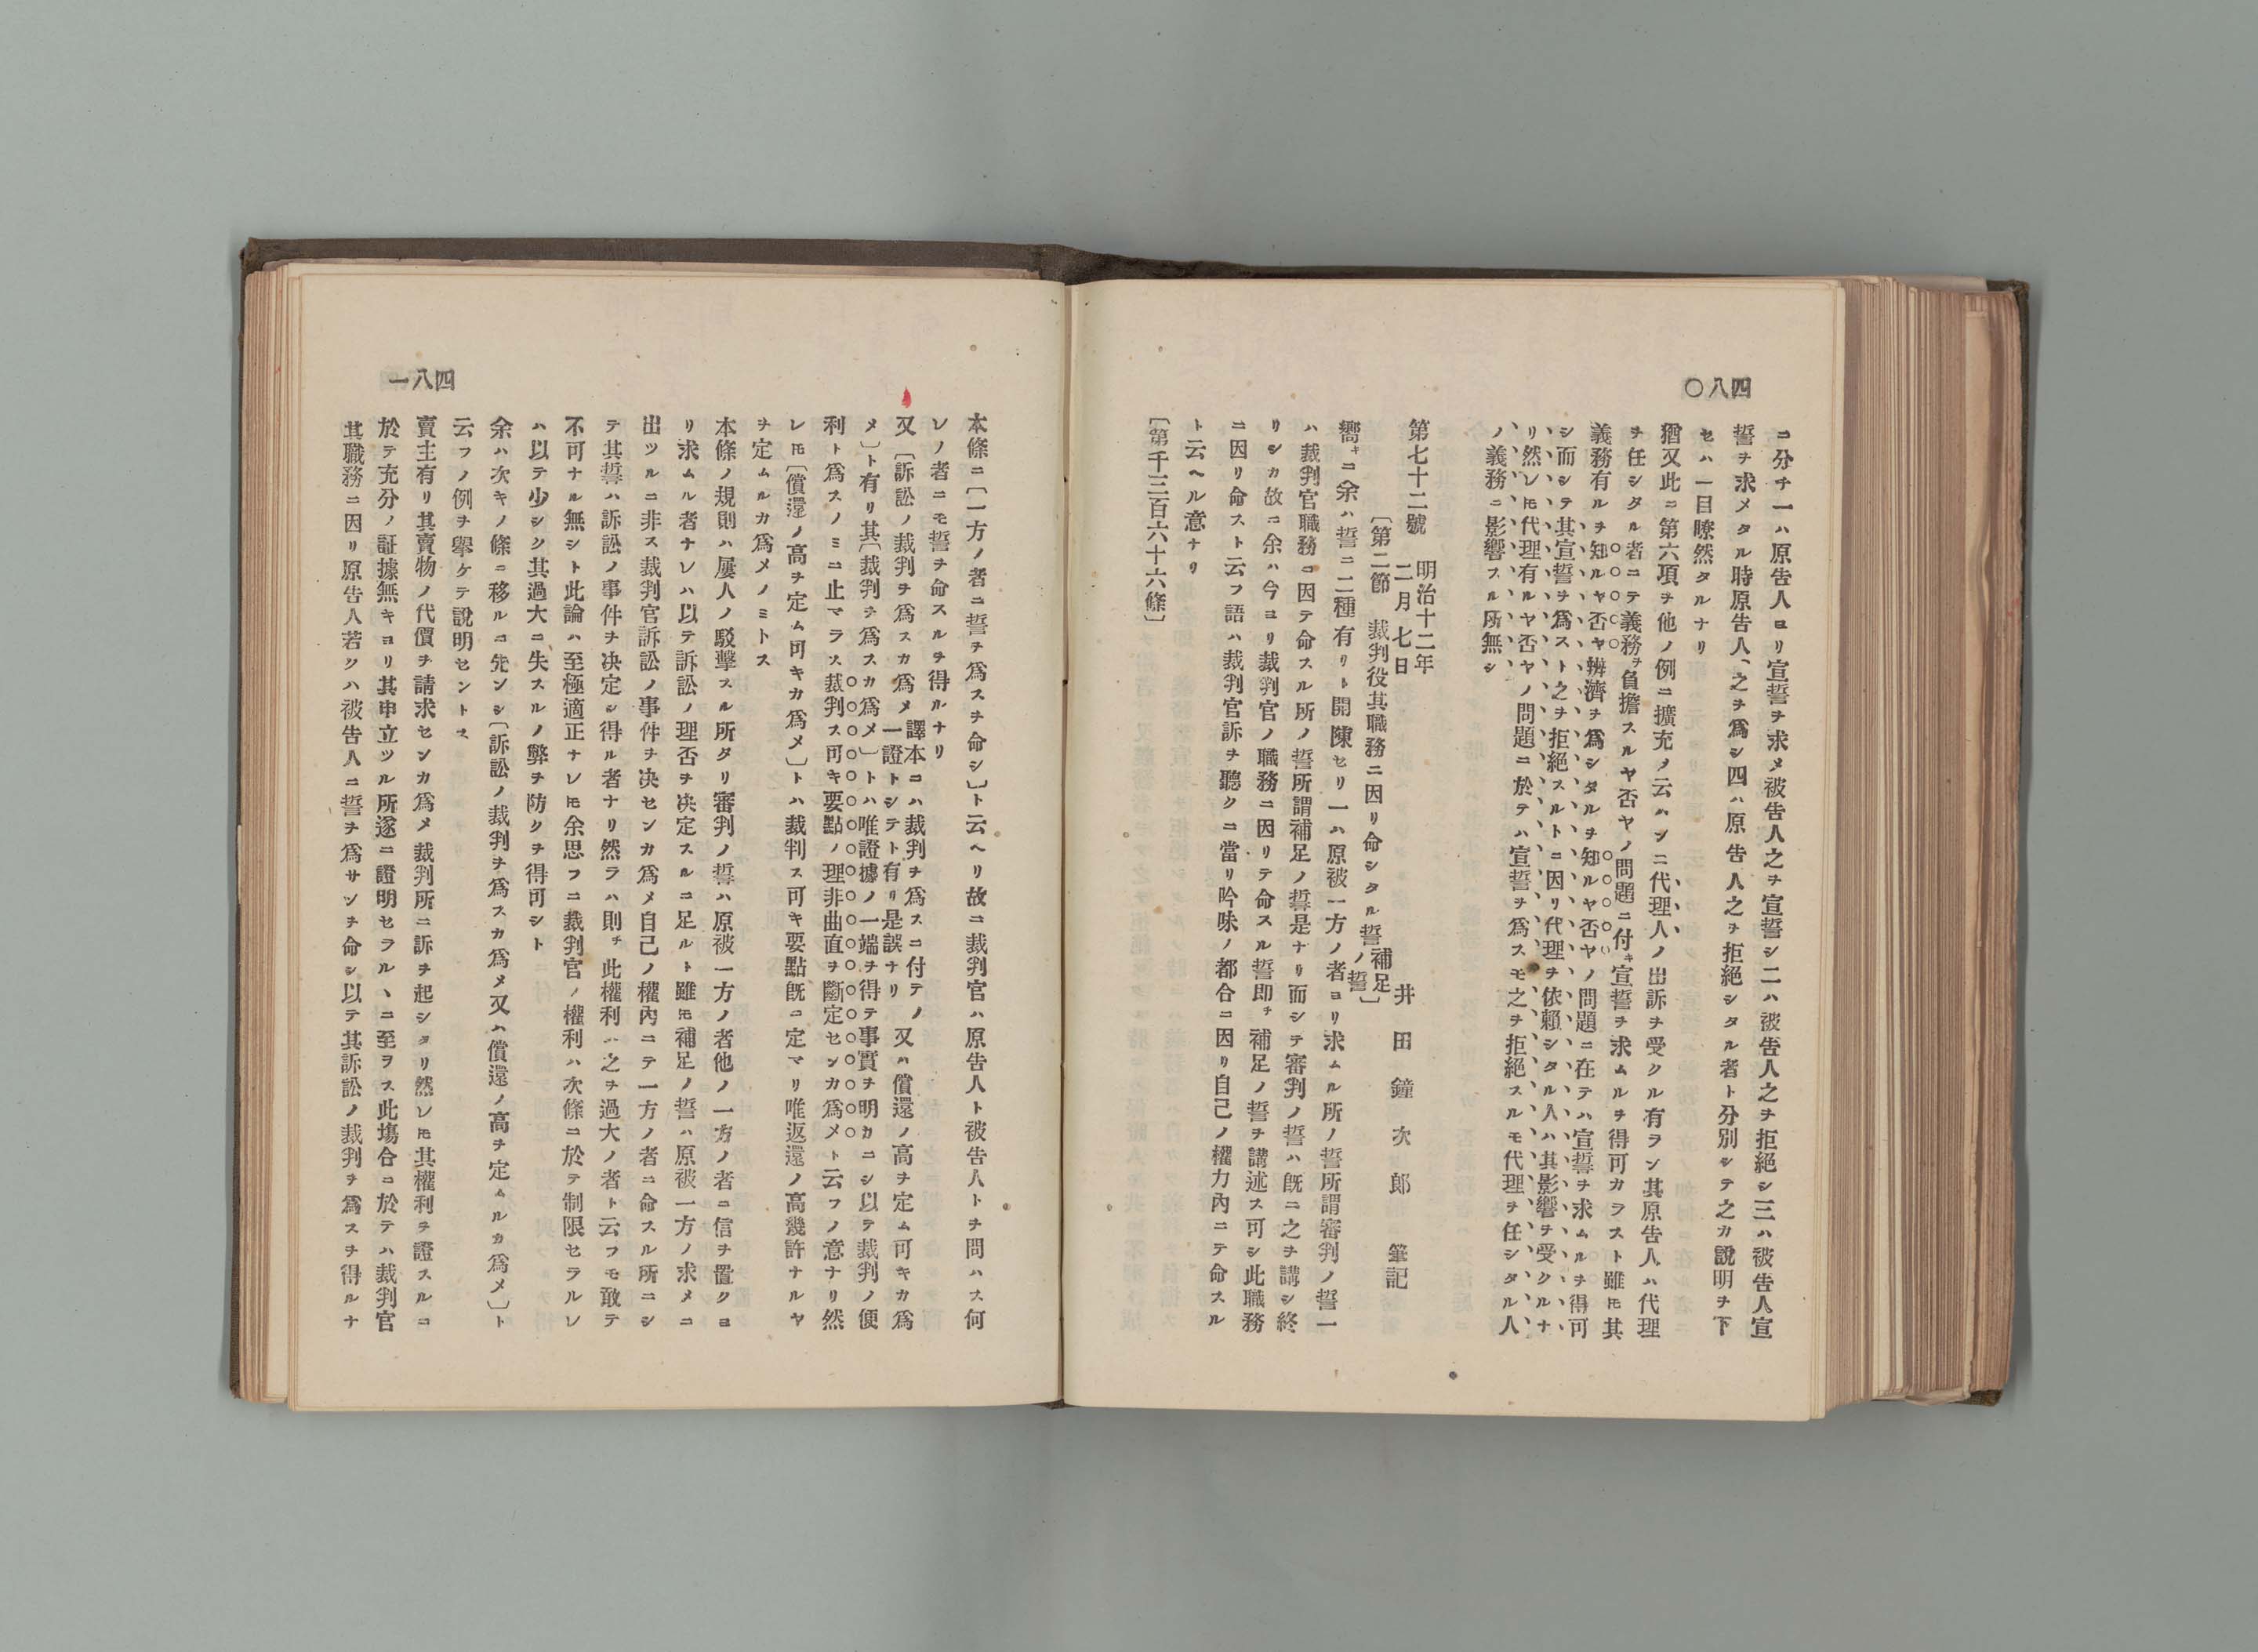 四八〇
ニ分チ一ハ原告人ヨリ宣誓ヲ求メ被告人之ヲ宣誓シ二ハ被告人之ヲ拒絕シ三ハ被告人宣
誓ヲ求メタル時原告人、之ヲ爲シ四ハ原告人之ヲ拒絕シタル者ト分別シテ之カ說明ヲ下
セハ一目瞭然タルナリ
猶又此ニ第六項ヲ他ノ例ニ擴充ノ云ハンニ代理人ノ出訴ヲ受クル有ラン其原告人ハ代理
ヲ任シタル者ニテ義務ヲ負擔スルヤ否ヤノ問題ニ付キ宣誓ヲ求ムルヲ得可カラスト雖𪜈其
義務有ルヲ知ルヤ否ヤ辨濟ヲ爲シタルヲ知ルヤ否ヤノ問題ニ在テハ宣誓ヲ求ムルヲ得可
シ而シテ其宣誓ヲ爲スト之ヲ拒絕スルトニ因リ代理ヲ依賴シタル人ハ其影響ヲ受クルナ
リ然レ𪜈代理有ルヤ否ヤノ問題ニ於テハ宣誓ヲ爲スモ之ヲ拒絕スルモ代理ヲ任シタル人
ノ義務ニ影響スル所無シ
第七十二號 明治十二年二月七日 井田鐘次郎 筆記
〔第二節 裁判役其職務ニ因リ命シタル誓補足ノ誓〕
嚮キニ余ハ誓ニ二種有リト開陳セリ一ハ原被一方ノ者ヨリ求ムル所ノ誓所謂審判ノ誓一
ハ裁判官職務ニ因テ命スル所ノ誓所謂補足ノ誓是ナリ而シテ審判ノ誓ハ旣ニ之ヲ講シ終
リシカ故ニ余ハ今ヨリ裁判官ノ職務ニ因リテ命スル誓即チ補足ノ誓ヲ講述ス可シ此職務
ニ因リ命スト云フ語ハ裁判官訴ヲ聽クニ當リ吟味ノ都合ニ因リ自己ノ權力內ニテ命スル
ト云ヘル意ナリ
〔第千三百六十六條〕
四八一
本條ニ〔一方ノ者ニ誓ヲ爲スヲ命シ〕ト云ヘリ故ニ裁判官ハ原告人ト被告人トヲ問ハス何
レノ者ニモ誓ヲ命スルヲ得ルナリ
又〔訴訟ノ裁判ヲ爲スカ爲メ譯本ニハ裁判ヲ爲スニ付テノ一證トシテト有リ是誤ナリ又ハ償還ノ高ヲ定ム可キカ爲
メ〕ト有リ其〔裁判ヲ爲スカ爲メ〕トハ唯證據ノ一端ヲ得テ事實ヲ明カニシ以テ裁判ノ便
利ト爲スノミニ止マラス裁判ス可キ要點ノ理非曲直ヲ斷定センカ爲メト云フノ意ナリ然
レ𪜈〔償還ノ高ヲ定ム可キカ爲メ〕トハ裁判ス可キ要點旣ニ定マリ唯返還ノ高幾許ナルヤ
ヲ定ムルカ爲メノミトス
本條ノ規則ハ屢人ノ駁擊スル所タリ審判ノ誓ハ原被一方ノ者他ノ一方ノ者ニ信ヲ置クヨ
リ求ムル者ナレハ以テ訴訟ノ理否ヲ决定スルニ足ルト雖𪜈補足ノ誓ハ原被一方ノ求メニ
出ツルニ非ス裁判官訴訟ノ事件ヲ决センカ爲メ自己ノ權內ニテ一方ノ者ニ命スル所ニシ
テ其誓ハ訴訟ノ事件ヲ决定シ得ル者ナリ然ラハ則チ此權利ハ之ヲ過大ノ者ト云フモ敢テ
不可ナル無シト此論ハ至極適正ナレ𪜈余思フニ裁判官ノ權利ハ次條ニ於テ制限セラルレ
ハ以テ少シク其過大ニ失スルノ弊ヲ防クヲ得可シト
余ハ次キノ條ニ移ルニ先ンシ〔訴訟ノ裁判ヲ爲スカ爲メ又ハ償還ノ高ヲ定ムルカ爲メ〕ト
云フノ例ヲ擧ケテ說明セントス
賣主有リ其賣物ノ代價ヲ請求センカ爲メ裁判所ニ訴ヲ起シタリ然レ𪜈其權利ヲ證スルニ
於テ充分ノ証據無キヨリ其申立ツル所遂ニ證明セラルヽニ至ヲス此塲合ニ於テハ裁判官
其職務ニ因リ原告人若クハ被告人ニ誓ヲ爲サンヲ命シ以テ其訴訟ノ裁判ヲ爲スヲ得ルナ